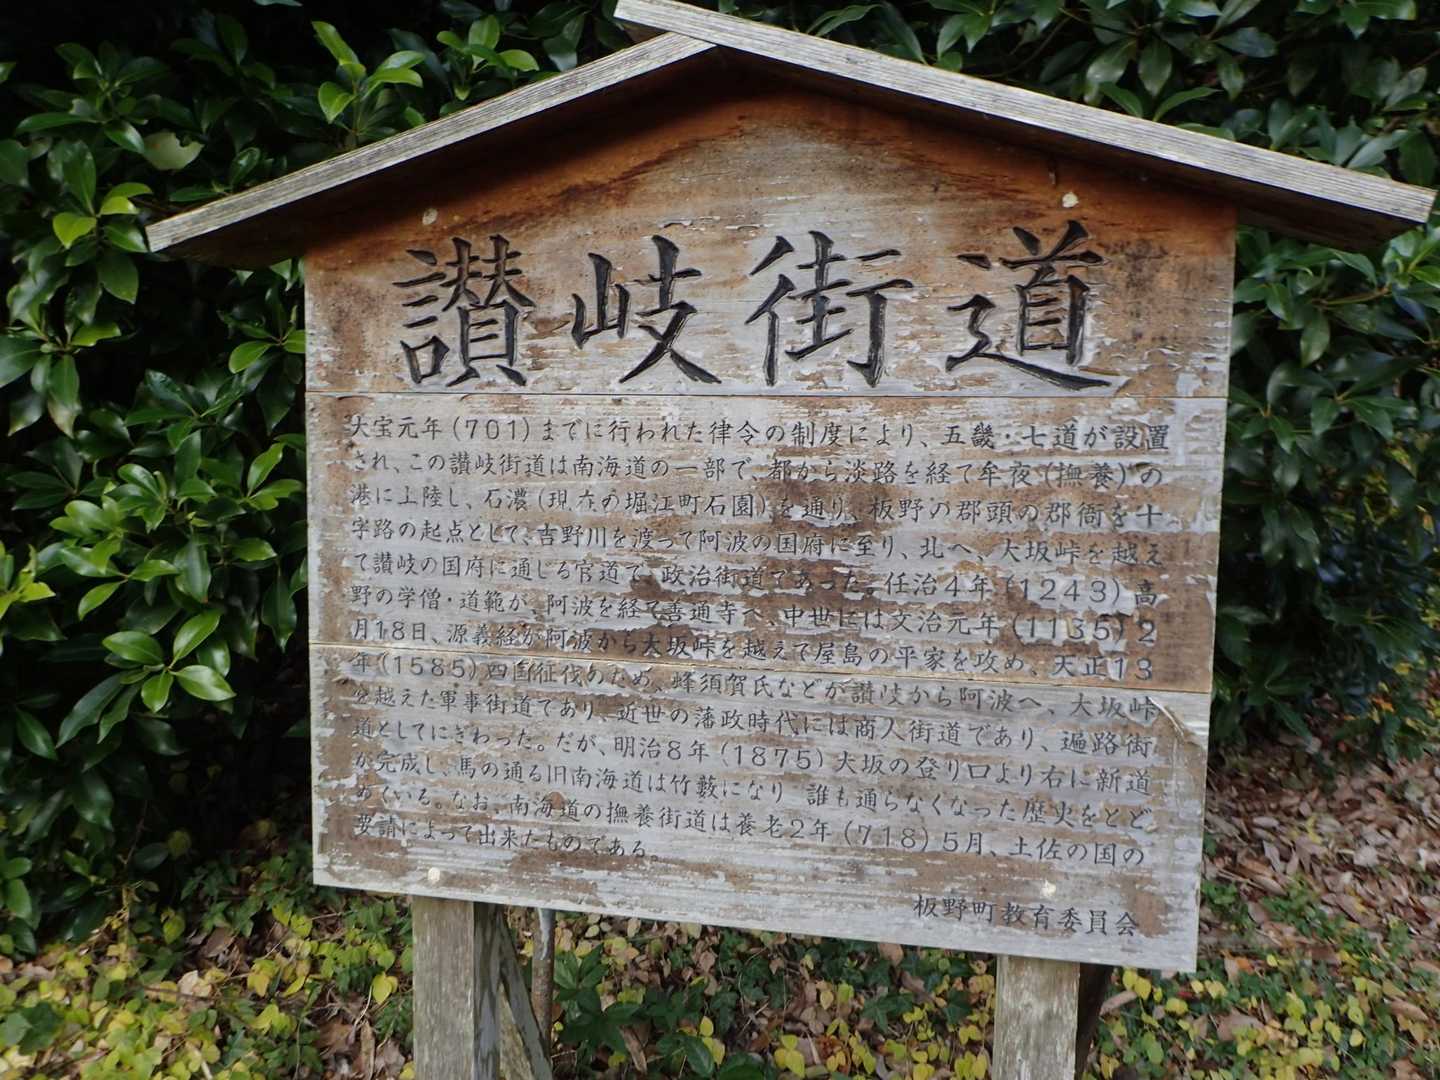 讃岐街道
大宝元年(701)までに行われた律令の制度により、五畿・七道が設置
され、この讃岐街道は南海道の一部で、都から淡路を経て牟夜(撫養)の
港に上陸し、石濃(現在の堀江町石園)を通り、板野の郡頭の郡衙を十
字路の起点として、吉野川を渡って阿波の国府に至り、北へ、大坂峠を越え
て讃岐の国府に通じる官道で、政治街道であった。任治4年(1243)高
野の学僧・道範が、阿波を経て善通寺へ、中世には文治元年(1135)2
月18日、源義経が阿波から大坂峠を越えて屋島の平家を攻め、天正13
年(1585)四国征伐のため、蜂須賀氏などが讃岐から阿波へ、大坂峠
を越えた軍事街道であり、近世の藩政時代には商人街道であり、遍路街
道としてにぎわった。だが、明治8年(1875)大坂の登り口より右に新道
が完成し、馬の通る旧南海道は竹藪になり 誰も通らなくなった歴史をとど
めている。なお、南海道の撫養街道は養老2年(718)5月、土佐の国の
要請によって出来たものである。
板野町教育委員会